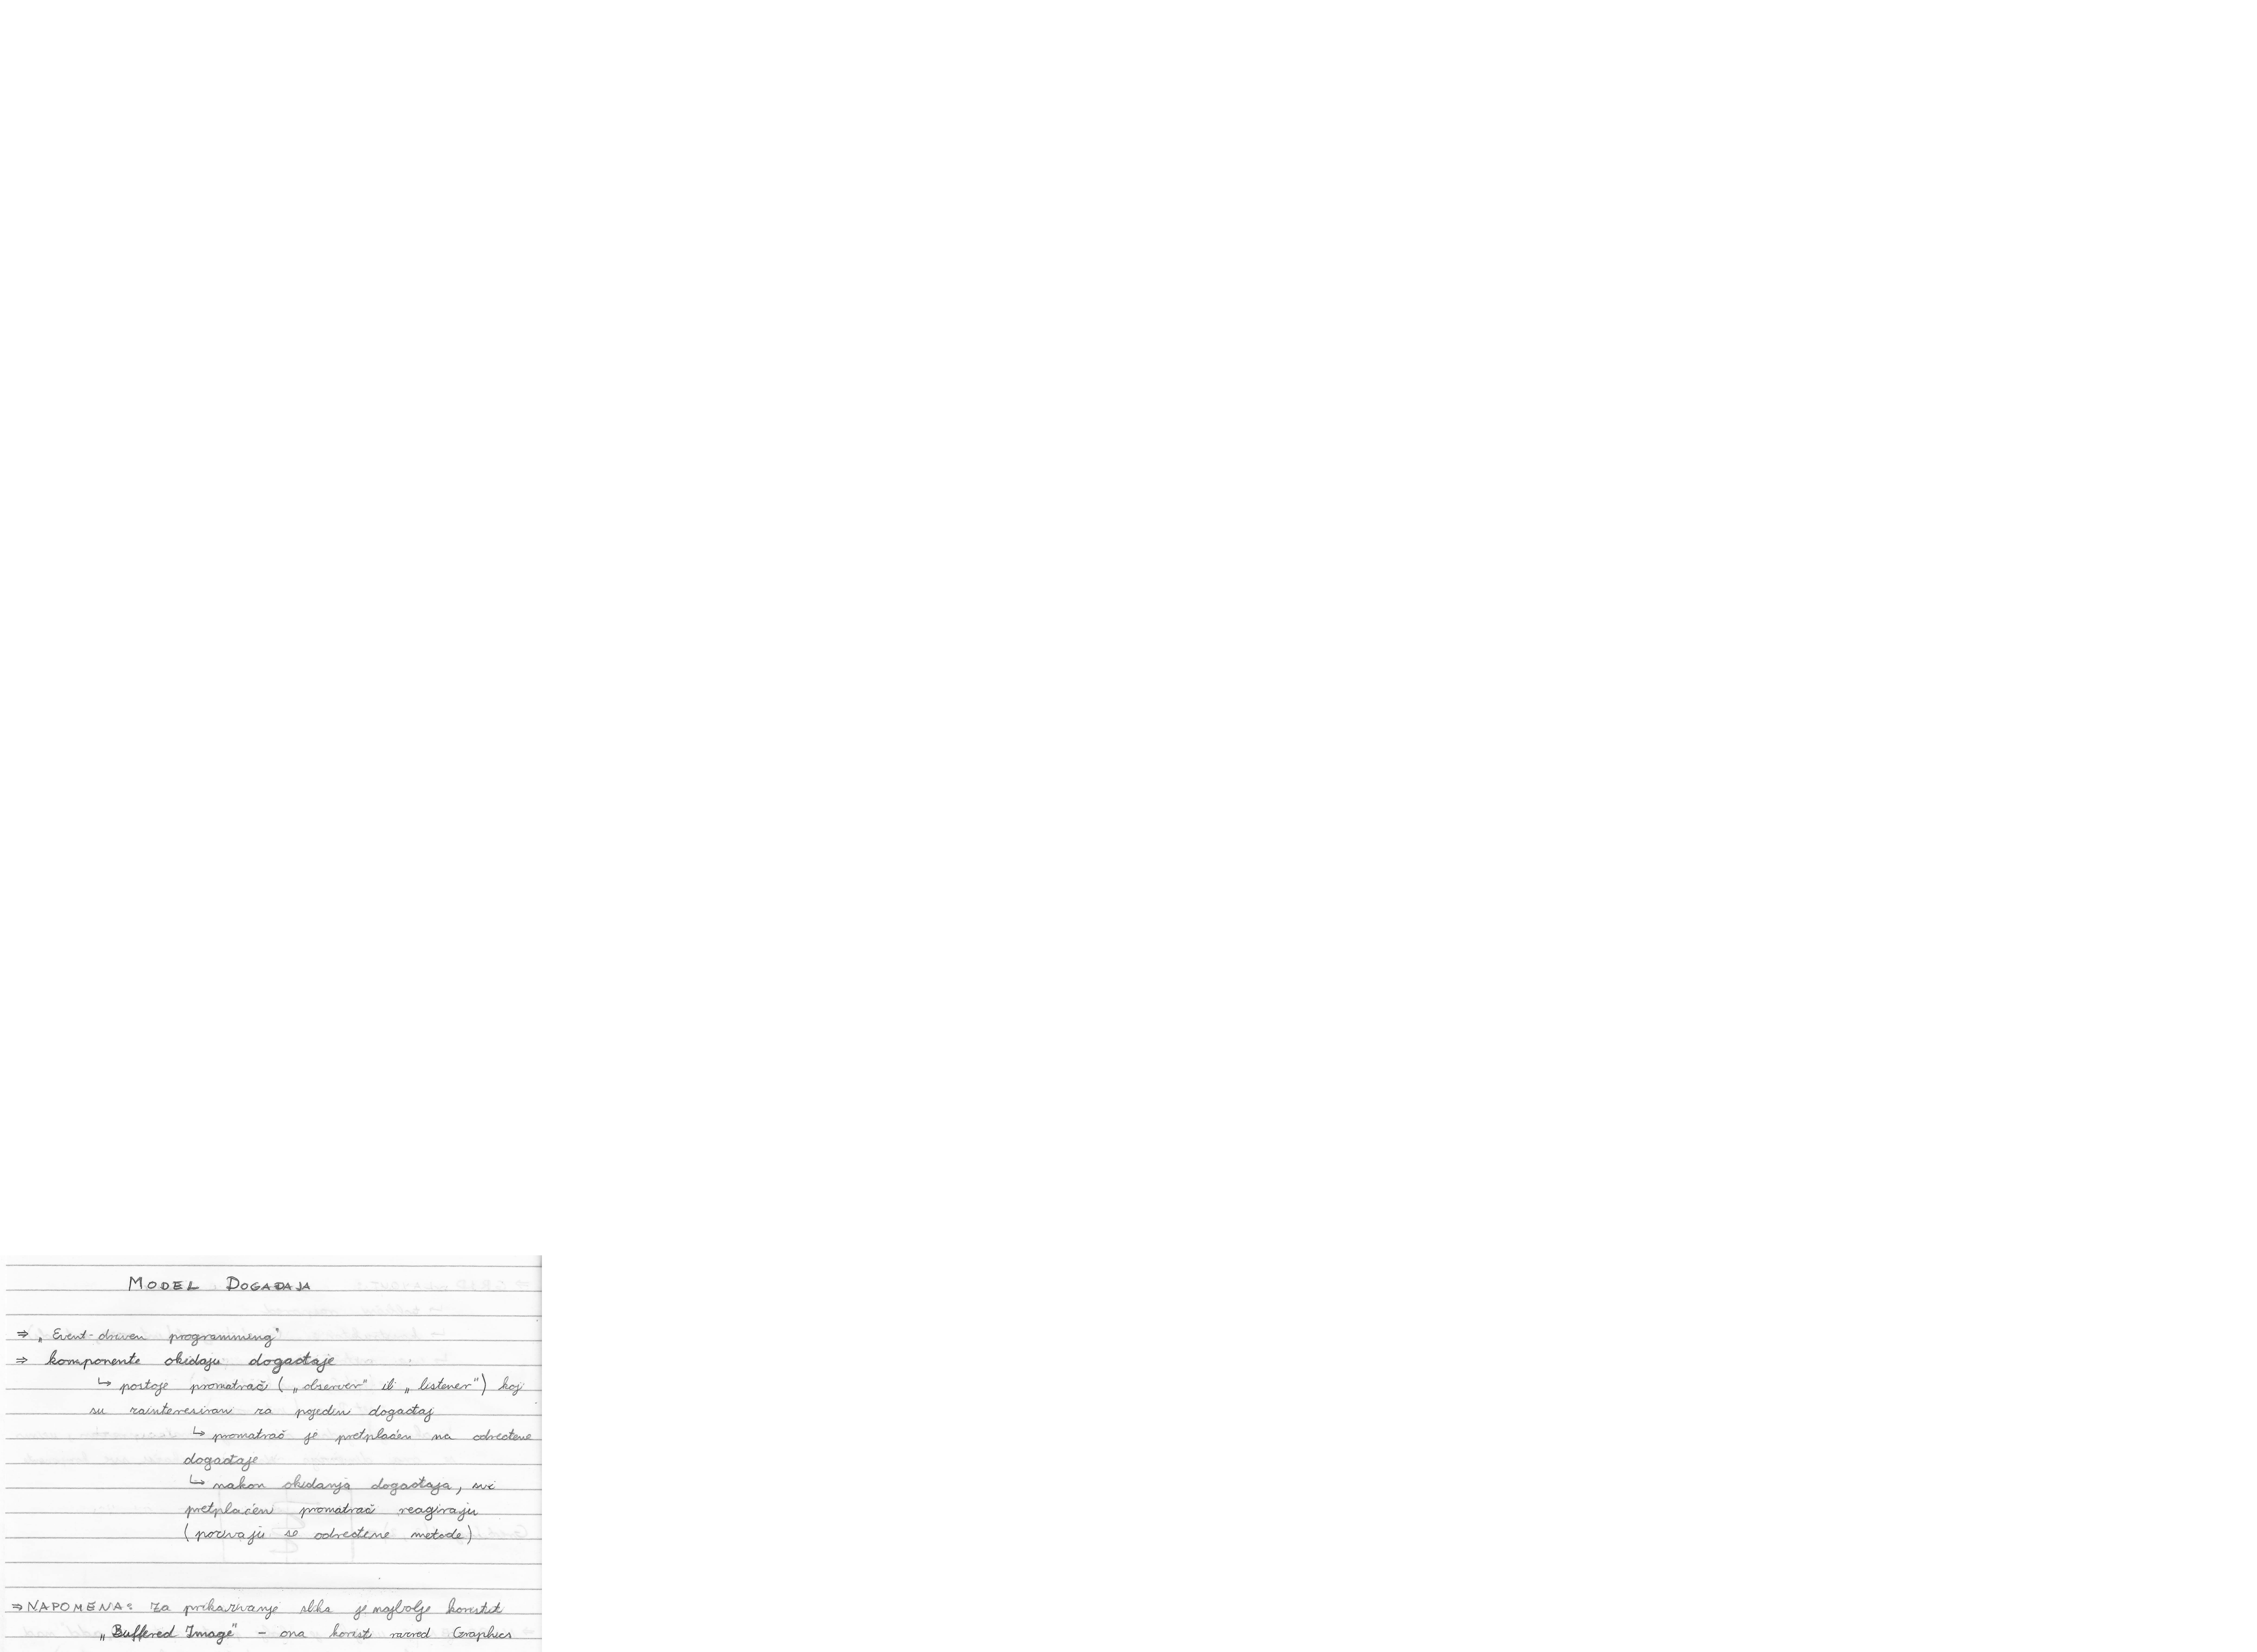 MODEL DOGAĐAJA
⇒ „Event-driven programming"
⇒ komponente okidaju događaje
↳ postoje promatrači („observer" ili „listener") koji
su zainteresirani za pojedini događaj
↳ promatrač je pretplaćen na određene
događaje
↳ nakon okidanja događaja, svi
pretplaćeni promatrači reagiraju
(pozivaju se određene metode)
⇒ NAPOMENA: Za prikazivanje slika je najbolje koristit
„Buffered Image" - ona koristi razred Graphics